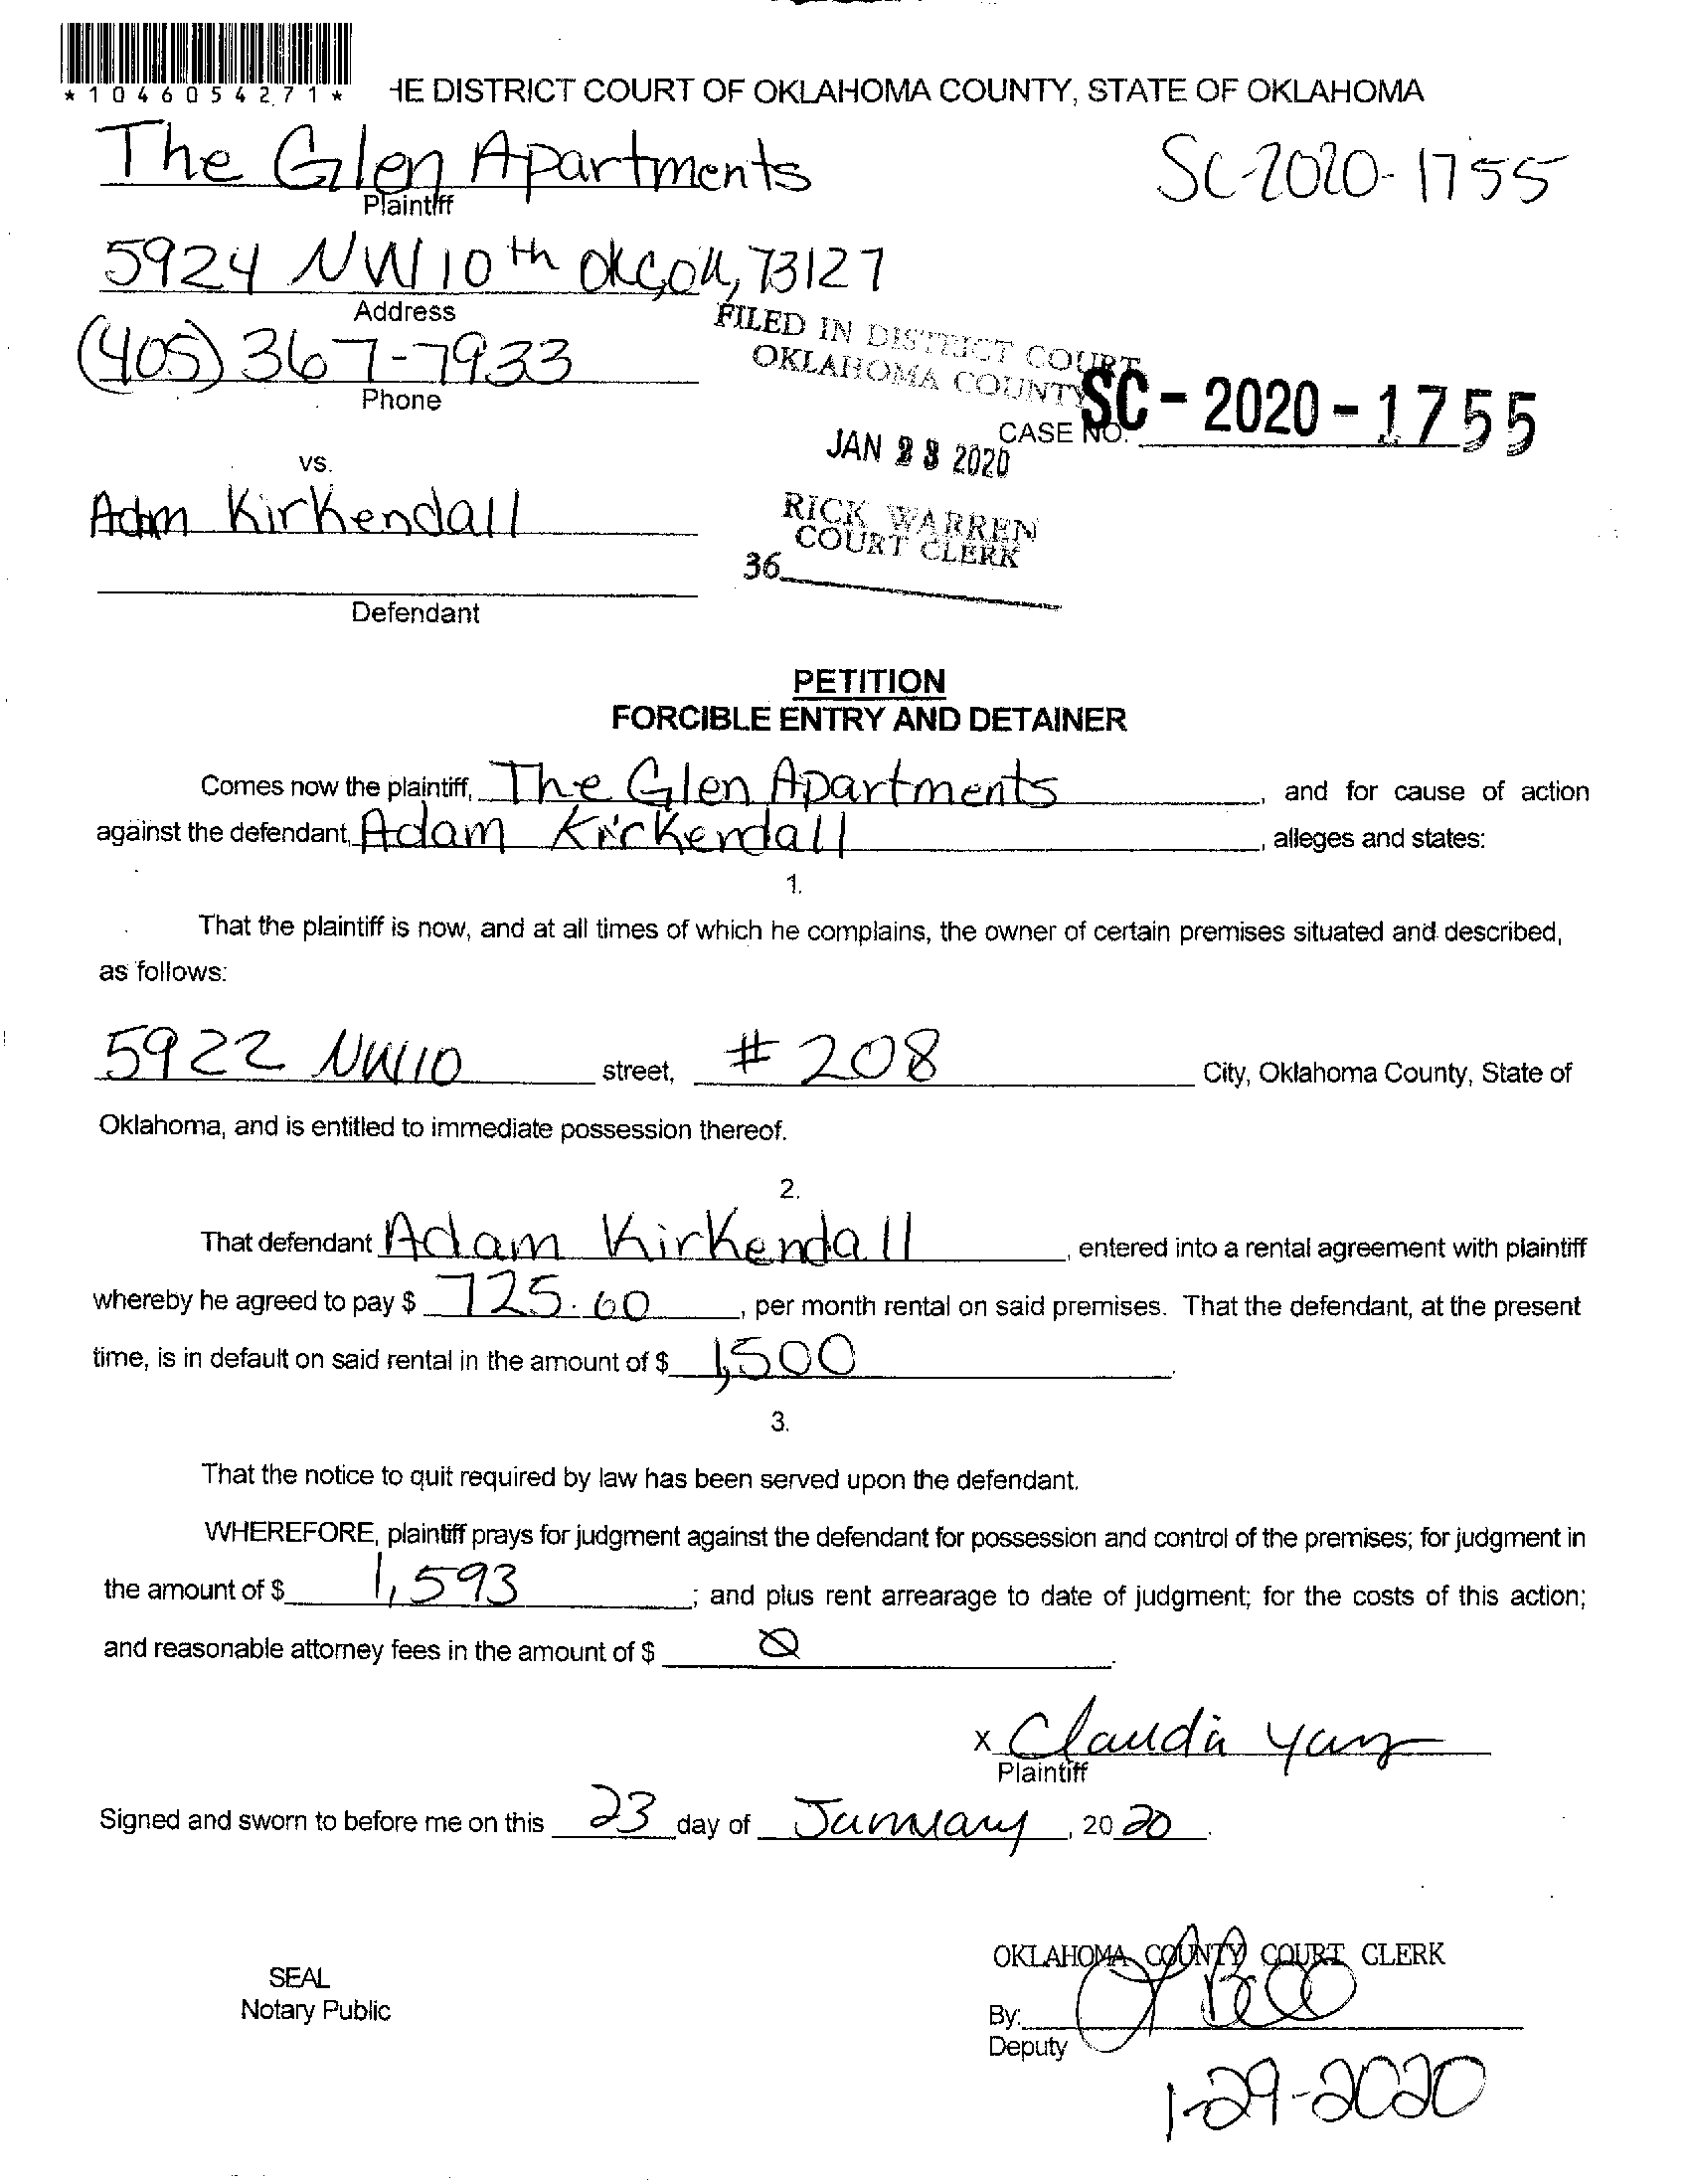 *1046054271*
HE DISTRICT COURT OF OKLAHOMA COUNTY, STATE OF OKLAHOMA
The Glen Apartments
SC-2020-1755
Plaintiff
5924 NW 10th OKC, OK, 73127
Address
(405) 367-7933
Phone
FILED IN DISTRICT COURT
OKLAHOMA COUNTY
CASE NO. SC-2020-1755
JAN 23 2020
vs.
RICK WARREN
COURT CLERK
Adam Kirkendall
36
Defendant
PETITION
FORCIBLE ENTRY AND DETAINER
Comes now the plaintiff, The Glen Apartments, and for cause of action
against the defendant, Adam Kirkendall, alleges and states:
1.
That the plaintiff is now, and at all times of which he complains, the owner of certain premises situated and described,
as follows:
5922 NW 10 street, # 208 City, Oklahoma County, State of
Oklahoma, and is entitled to immediate possession thereof.
2.
That defendant Adam Kirkendall, entered into a rental agreement with plaintiff
whereby he agreed to pay $ 725.60, per month rental on said premises. That the defendant, at the present
time, is in default on said rental in the amount of $ 1,500.
3.
That the notice to quit required by law has been served upon the defendant.
WHEREFORE, plaintiff prays for judgment against the defendant for possession and control of the premises; for judgment in
the amount of $ 1,593; and plus rent arrearage to date of judgment; for the costs of this action;
and reasonable attorney fees in the amount of $ 0.
x Claudia
Plaintiff
Signed and sworn to before me on this 23 day of January, 2020.
OKLAHOMA COUNTY COURT CLERK
SEAL
Notary Public
By:
Deputy
1-29-2020